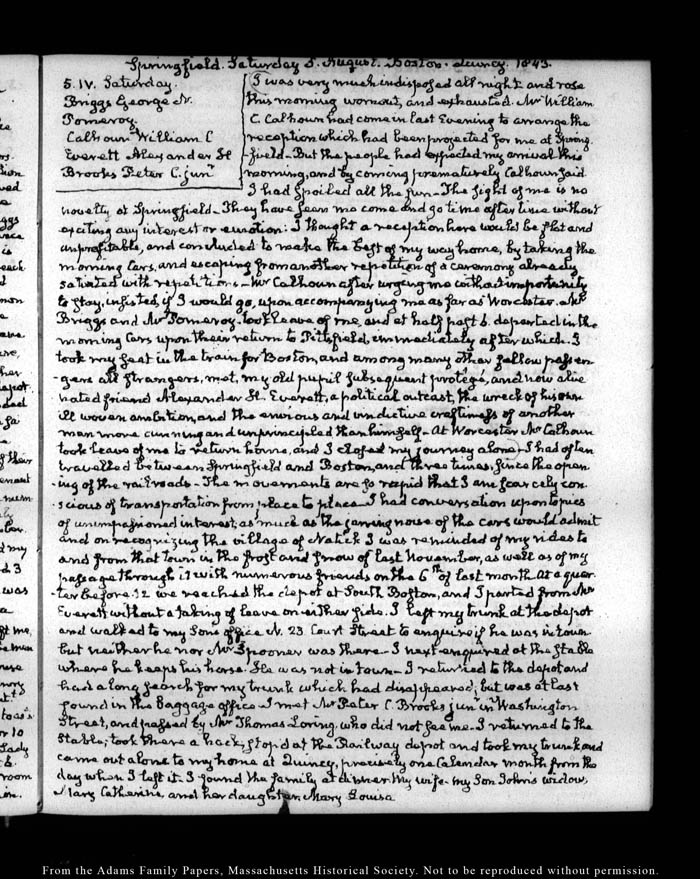 Springfield. Saturday 5. August. Boston. Quincy. 1843.
5. IV. Saturday.
Briggs George N.
Pomeroy.
Calhoun William C
Everett Alexander H
Brooks Peter C. junr
I was very much indisposed all night and rose
this morning wornout, and exhausted. Mr William
C. Calhoun had come in last Evening to arrange the
reception which had been projected for me at Spring-
field- But the people had expected my arrival this
morning, and by coming prematurely Calhoun said
I had spoiled all the fun- The sight of me is no
novelty at Springfield- They have seen me come and go time after time without
exciting any interest or emotion: I thought a reception here would be flat and
unprofitable, and concluded to make the best of my way home, by taking the
morning Cars, and escaping from another repetition of a ceremony already
satiated with repetitions- Mr Calhoun after urging me with out importunity
to stay, insisted, if I would go, upon accompanying me as far as Worcester. Mr
Briggs and Mr Pomeroy took leave of me, and at half past 6. departed in the
morning Cars upon their return to Pittsfield, immediately after which I
took my seat in the train for Boston, and among many other fellow passen-
-gers all strangers, met, my old pupil subsequent protégé, and now alie-
nated friend Alexander H. Everett, a political outcast, the wreck of his own
ill woven ambition, and the envious and vindictive craftiness of another
man more cunning and unprincipled than himself- At Worcester Mr Calhoun
took leave of me to return home, and I closed my journey alone- I had often
travelled between Springfield and Boston, and three times, since the open-
-ing of the railroads- The movements are so rapid that I am scarcely con-
-scious of transportation from place to place- I had conversation upon topics
of unimpassioned interest, as much as the jarring noise of the cars would admit
and on recognizing the village of Natick I was reminded of my rides to
and from that town in the frost and snow of last November, as well as of my
passage through it with numerous friends on the 6th of last month. At a quar-
-ter before 12 we reached the depot at South Boston, and I parted from Mr
Everett without a taking of leave on either side. I left my trunk at the depot
and walked to my Sons office N. 23. Court Street to enquire if he was in town
but neither he nor Mr Spooner was there- I next enquired at the stable
where he keeps his horse. He was not in town- I returned to the depot and
had a long search for my trunk which had disappeared; but was at last
found in the baggage office. I met Mr Peter C. Brooks junr in Washington
Street, and passed by Mr Thomas Loring, who did not see me- I returned to the
Stable; took there a hack, stop'd at the Railway depot and took my trunk and
came out alone to my home at Quincy, precisely one Calendar month from the
day when I left it. I found the family at dinner. My wife- my Son John's widow,
Mary Catherine, and her daughter, Mary Louisa
From the Adams Family Papers, Massachusetts Historical Society. Not to be reproduced without permission.